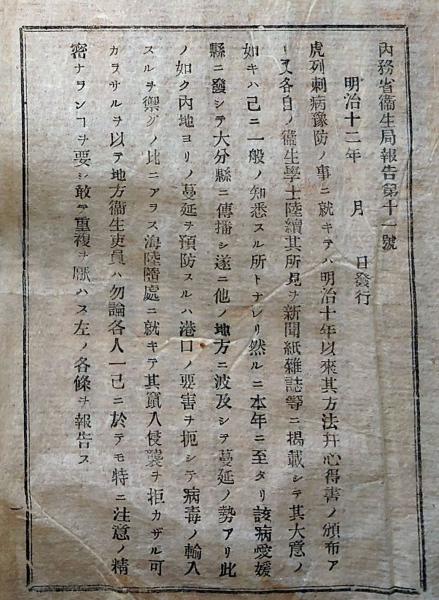 內務省衞生局報告第十一號
明治十二年　月　日發行
虎列剌病豫防ノ事ニ就キテハ明治十年以來其方法幷心得書ノ頒布ア
リ又各自ノ衞生學士陸續其所見ヲ新聞紙雜誌等ニ揭載シテ其大意ノ
如キハ已ニ一般ノ知悉スル所トナレリ然ルニ本年ニ至タリ該病愛媛
縣ニ發シテ大分縣ニ傳播シ遂ニ他ノ地方ニ波及シテ蔓延ノ勢アリ此
ノ如ク內地ヨリノ蔓延ヲ預防スルハ港口ノ要害ヲ扼シテ病毒ノ輸入
スルヲ禦グノ比ニアラス海陸隨處ニ就キテ其竄入侵襲ヲ拒カザル可
カラサルヲ以テ地方衞生吏員ハ勿論各人一己ニ於テモ特ニ注意ノ精
密ナランヿヲ要シ敢テ重複ヲ厭ハス左ノ各條ヲ報告ス